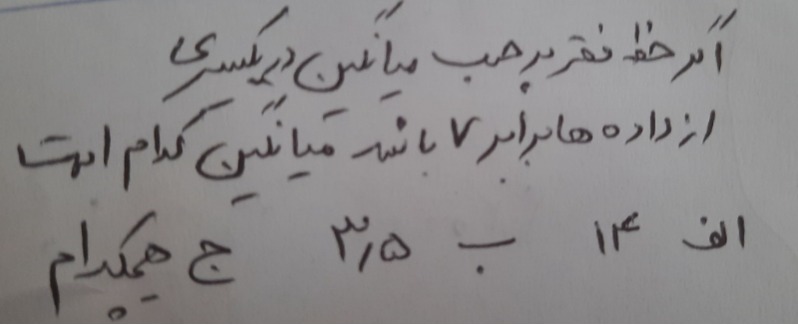 اگر خط فقر بر حسب میانگین در یکسری
از داده ها برابر ۷ باشد میانگین کدام است
الف ۱۴ ب ۳٫۵ ج هیچکدام